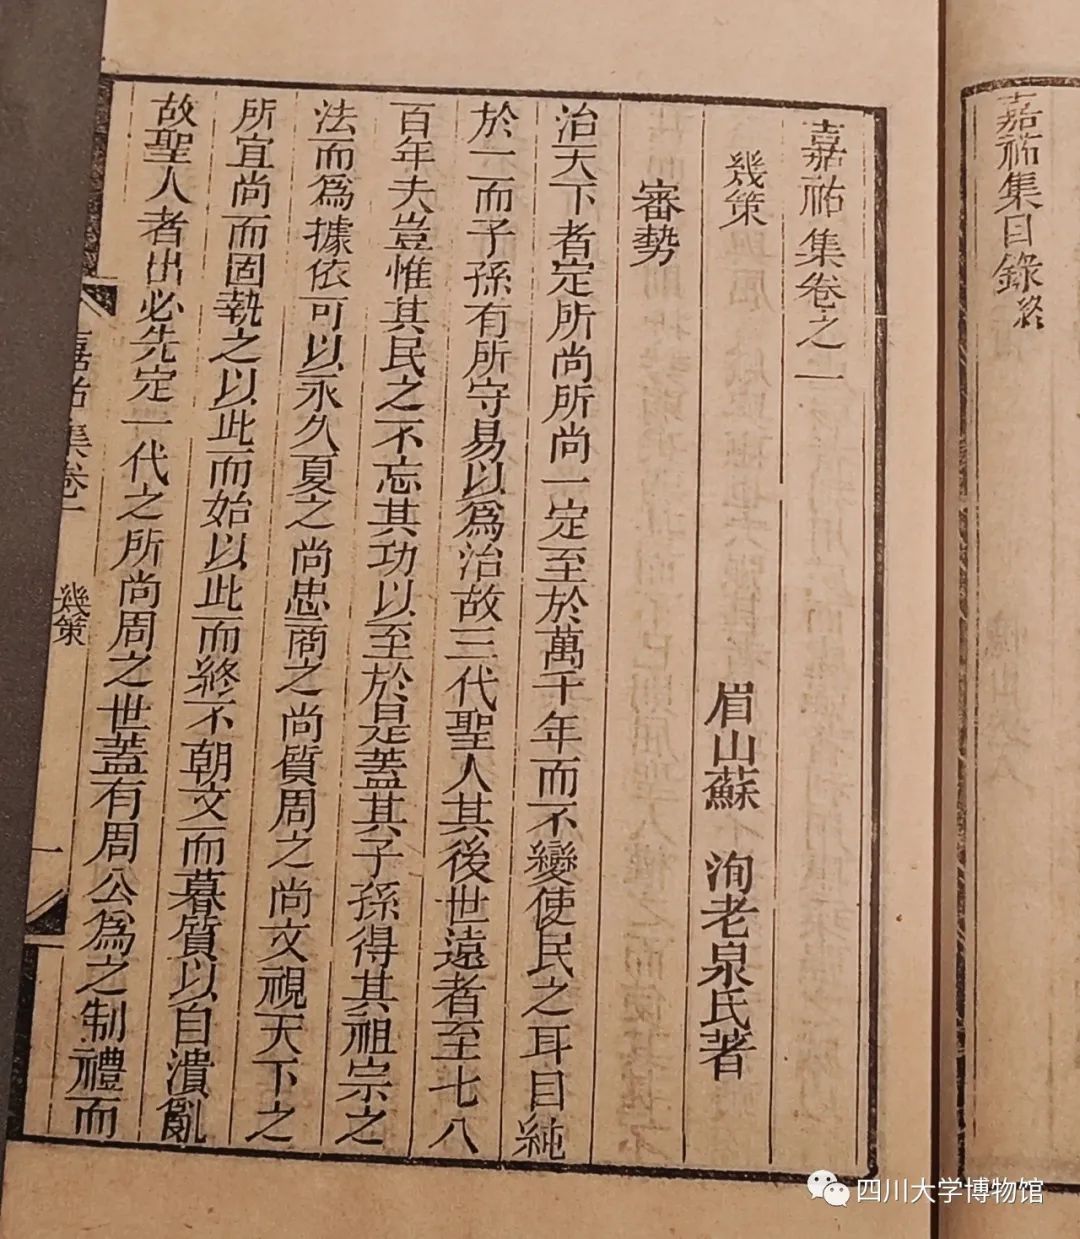 嘉祐集目錄終
嘉祐集卷之一
眉山蘇 洵老泉氏著
幾策
審勢
治天下者定所尚所尚一定至於萬千年而不變使民之耳目純
於一而子孫有所守易以爲治故三代聖人其後世遠者至七八
百年夫豈惟其民之不忘其功以至於是蓋其子孫得其祖宗之
法而爲據依可以永久夏之尚忠商之尚質周之尚文視天下之
所宜尚而固執之以此而始以此而終不朝文而暮質以自潰亂
故聖人者出必先定一代之所尚周之世蓋有周公爲之制禮而
嘉祐集卷一 幾策 一
四川大学博物馆